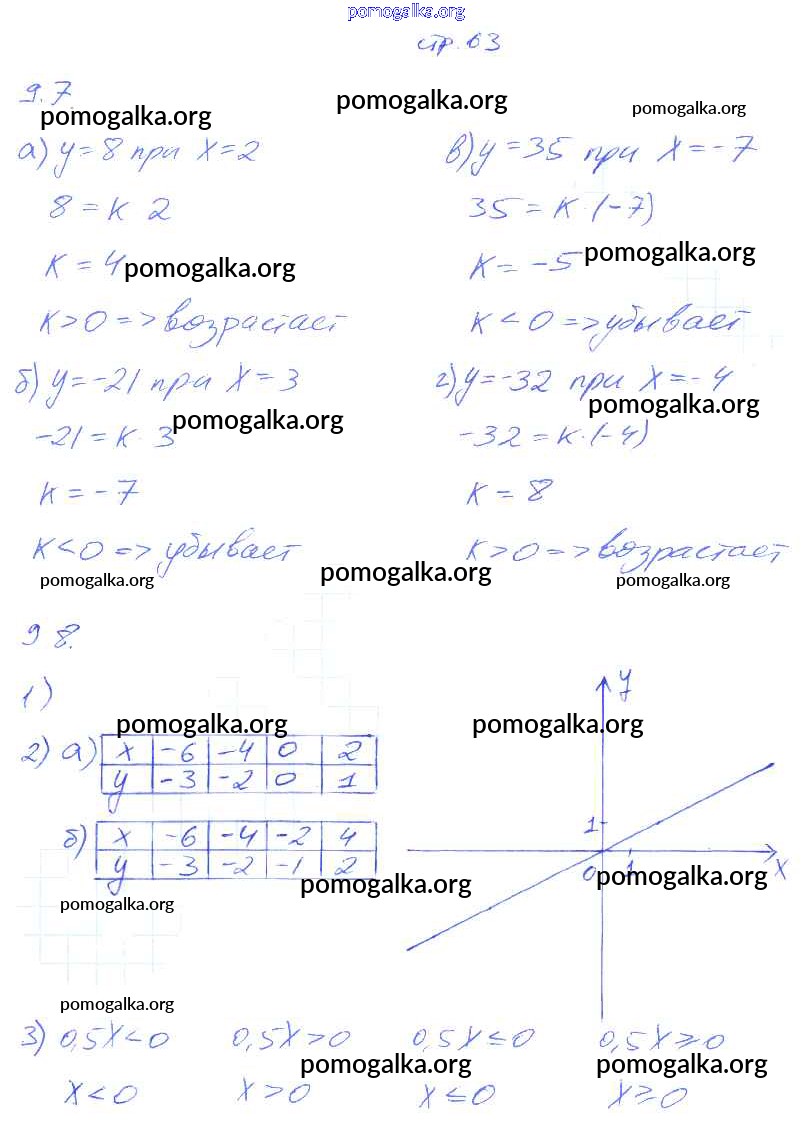 pomogalka.org
стр. 63
9.7
pomogalka.org pomogalka.org pomogalka.org
а) y = 8 при x = 2
8 = k 2
k = 4
pomogalka.org
k > 0 => возрастает
б) y = -21 при x = 3
pomogalka.org
-21 = k · 3
k = -7
k < 0 => убывает
pomogalka.org
в) y = 35 при x = -7
35 = k · (-7)
k = -5
pomogalka.org
k < 0 => убывает
г) y = -32 при x = -4
pomogalka.org
-32 = k · (-4)
k = 8
k > 0 => возрастает
pomogalka.org pomogalka.org
9 8.
1)
pomogalka.org
2) а) x -6 -4 0 2
y -3 -2 0 1
б) x -6 -4 -2 4
y -3 -2 -1 2
pomogalka.org
pomogalka.org
y
pomogalka.org
1
0 1 x
pomogalka.org
pomogalka.org
3) 0,5x < 0 0,5x > 0 0,5x ≤ 0 0,5x ≥ 0
pomogalka.org pomogalka.org
x < 0 x > 0 x ≤ 0 x ≥ 0